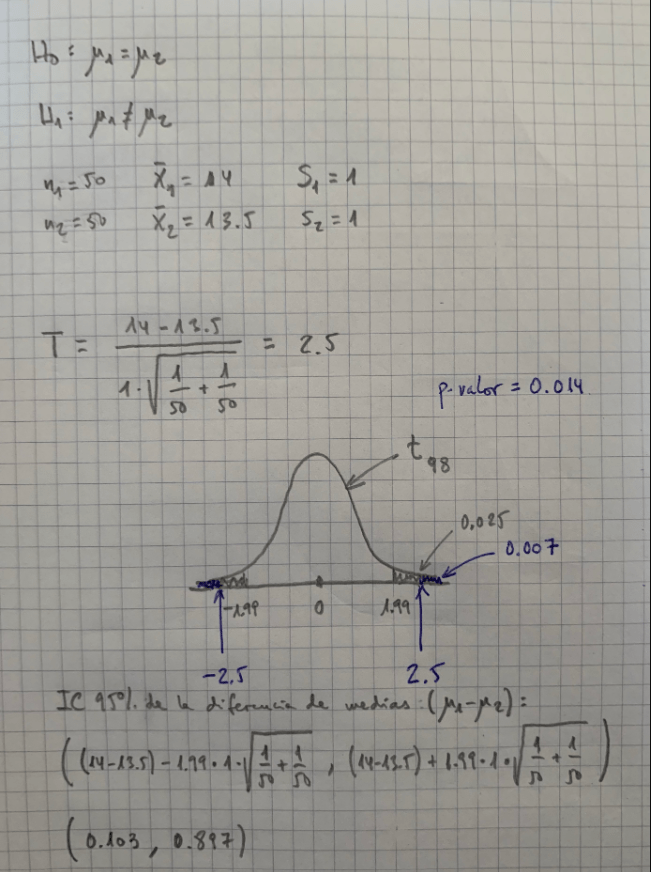 H₀ : μ₁ = μ₂
H₁ : μ₁ ≠ μ₂
n₁ = 50 X̄₁ = 14 S₁ = 1
n₂ = 50 X̄₂ = 13.5 S₂ = 1
T = (14 - 13.5) / (1·√(1/50 + 1/50)) = 2.5
p-valor = 0.014
t₉₈
0,025
0.007
-1.99 0 1.99
-2.5 2.5
IC 95% de la diferencia de medias: (μ₁-μ₂):
((14-13.5) - 1.99·1·√(1/50 + 1/50) , (14-13.5) + 1.99·1·√(1/50 + 1/50))
(0.103 , 0.897)